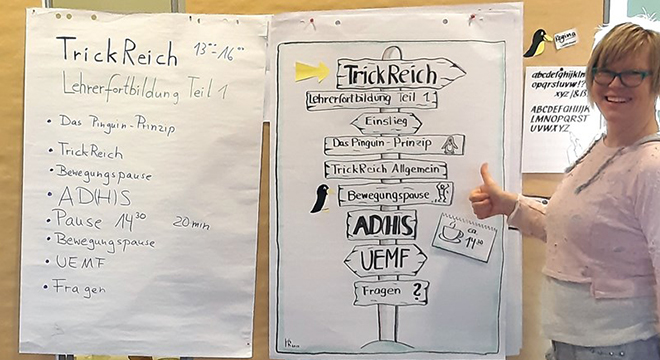 TrickReich 13⁰⁰-16⁰⁰
Lehrerfortbildung Teil 1
• Das Pinguin-Prinzip
• TrickReich
• Bewegungspause
• AD(H)S
• Pause 14³⁰ 20 min
• Bewegungspause
• UEMF
• Fragen
TrickReich
Lehrerfortbildung Teil 1
Einstieg
Das Pinguin-Prinzip
TrickReich Allgemein
Bewegungspause
AD(H)S
ca. 14³⁰
UEMF
Fragen ?
Regina
abcdefghijklm
opqrstuvw
xyz
ABCDEFGHIJK
LMNOPQRST
UVWXYZ